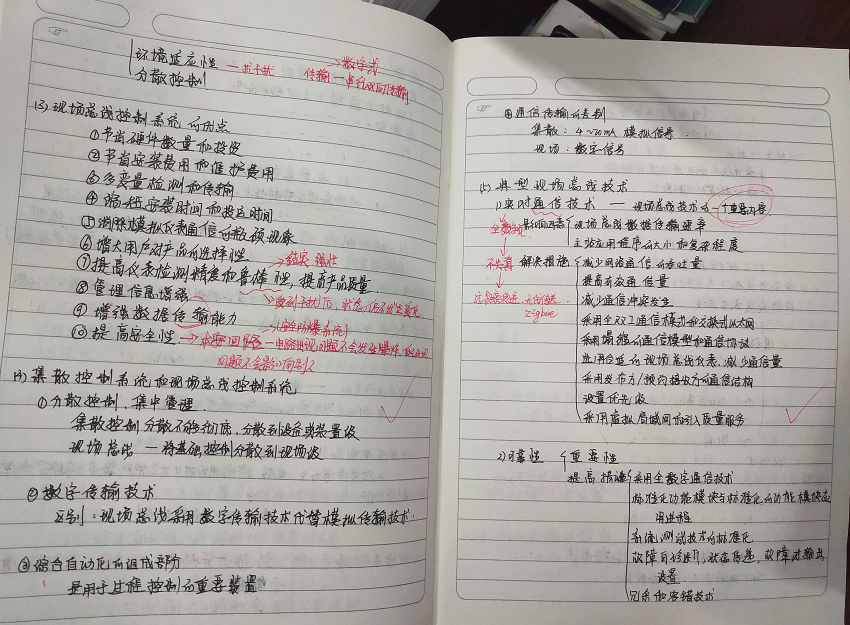 环境适应性 — 抗干扰
分散控制
→数字式
传输 — 串行双向传输
(3) 现场总线控制系统的优点
①节省硬件数量和投资
②节省安装费用和维护费用
③多变量检测和传输
④缩短安装时间和投运时间
⑤消除模拟仪表通信的数据现象
⑥增大用户对产品的选择性
⑦提高仪表检测精度和鲁棒性，提高产品质量
⑧管理信息增强
⑨增强数据传输能力
⑩提高安全性 → 本安回路 — 电路出现问题不会发生爆炸
→结果：强壮
→(安全防爆系统)
问题不会影响
(4) 集散控制系统和现场总线控制系统
①分散控制、集中管理
集散控制分散不够彻底，分散到设备或装置级
现场总线 — 将基础控制分散到现场级
②数字传输技术
区别：现场总线采用数字传输技术代替模拟传输技术.
③综合自动化的组成部分
是用于过程控制的重要装置
④通信传输的差别
集散：4~20mA 模拟信号
现场：数字信号
(5) 典型现场总线技术
1)实时通信技术 — 现场总线技术的一个重要内容.
影响因素 现场总线数据传输速率
主站应用程序的大小和复杂程度
不失真
解决措施 减少网络通信的吞吐量
提高有效通信量
减少通信冲突发生
zigbee
采用全双工通信模式和交换式以太网
采用缩短的通信模型和通信协议
选用合适的现场总线仪表、减少通信量
采用发布方/预约接收方的通信结构
设置优先级
采用虚拟局域网和引入质量服务
2)可靠性 重要性
提高措施 采用全数字通信技术
标准化功能模块与标准化的功能模块应
用进程
系统测试技术的标准化
故障自诊断，状态传递，故障时输出
设置
冗余和容错技术